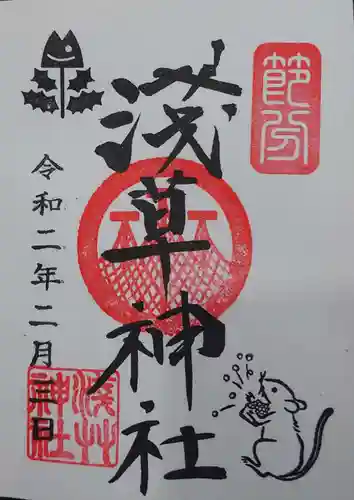 節分
浅草神社
令和二年二月三日
浅草神社